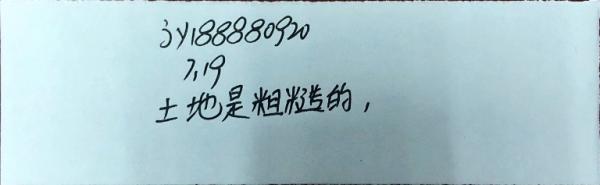 jy188880920
7,19
土地是粗糙的,